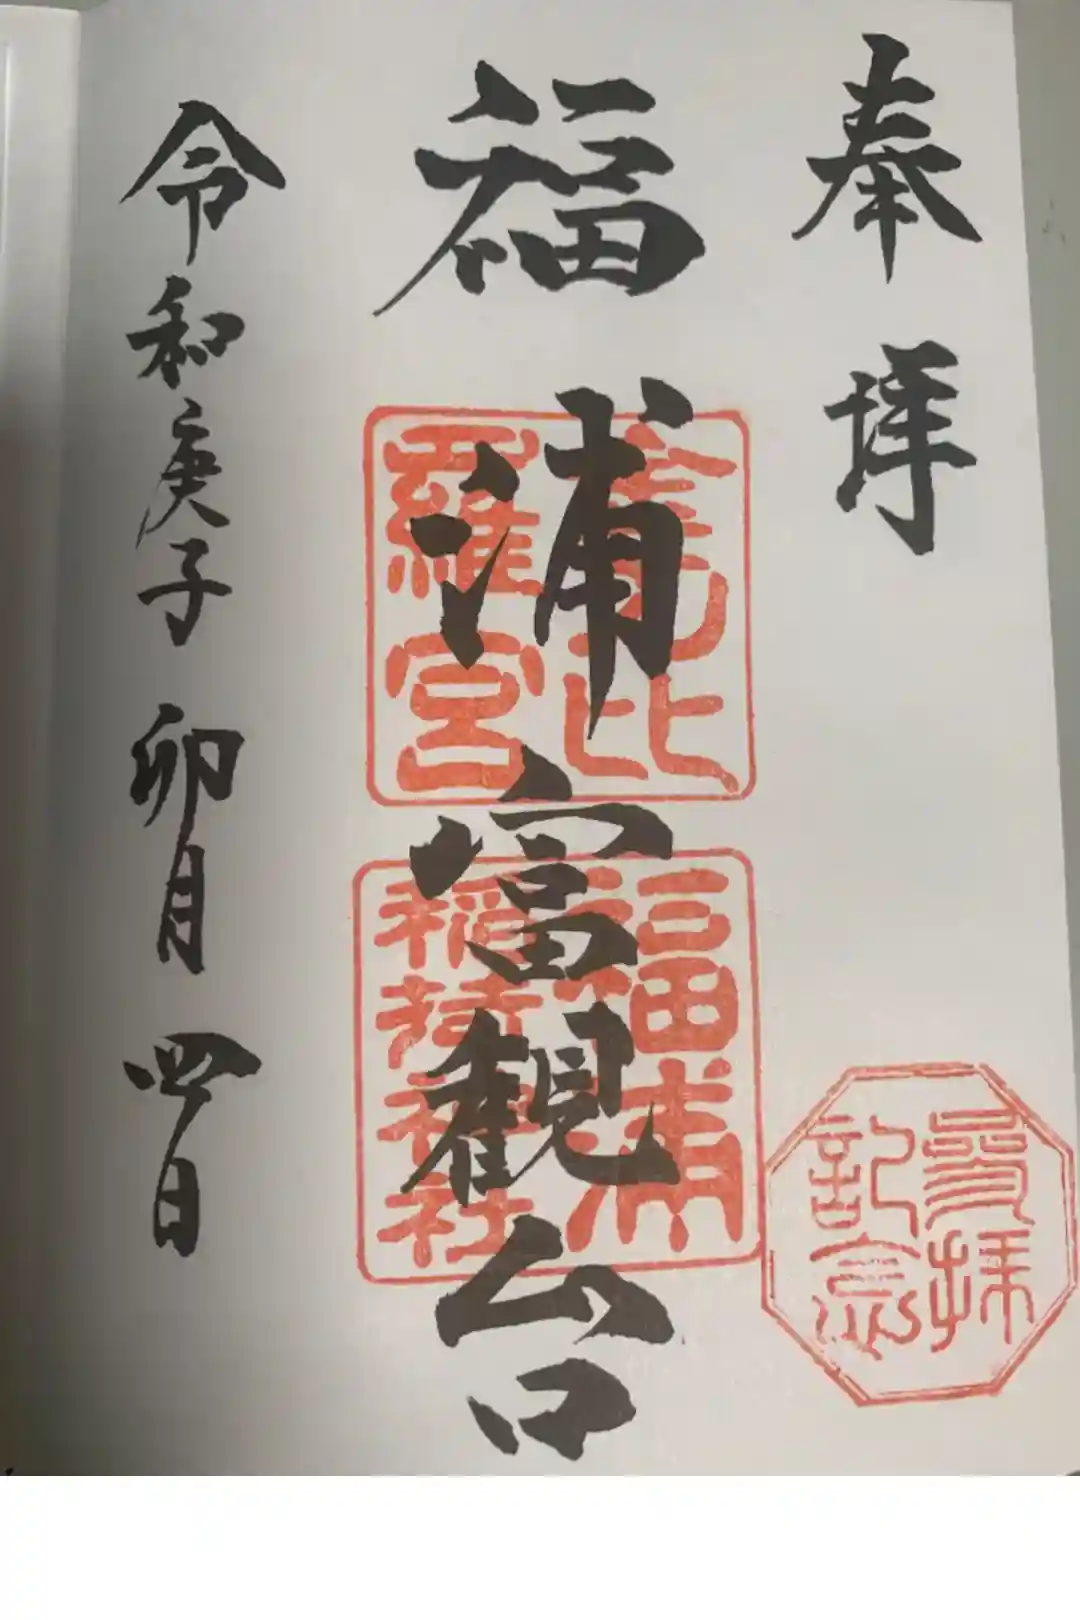 奉拝
福浦富観台
金毘羅宮
福浦稲荷神社
参拝記念
令和庚子 卯月 四日